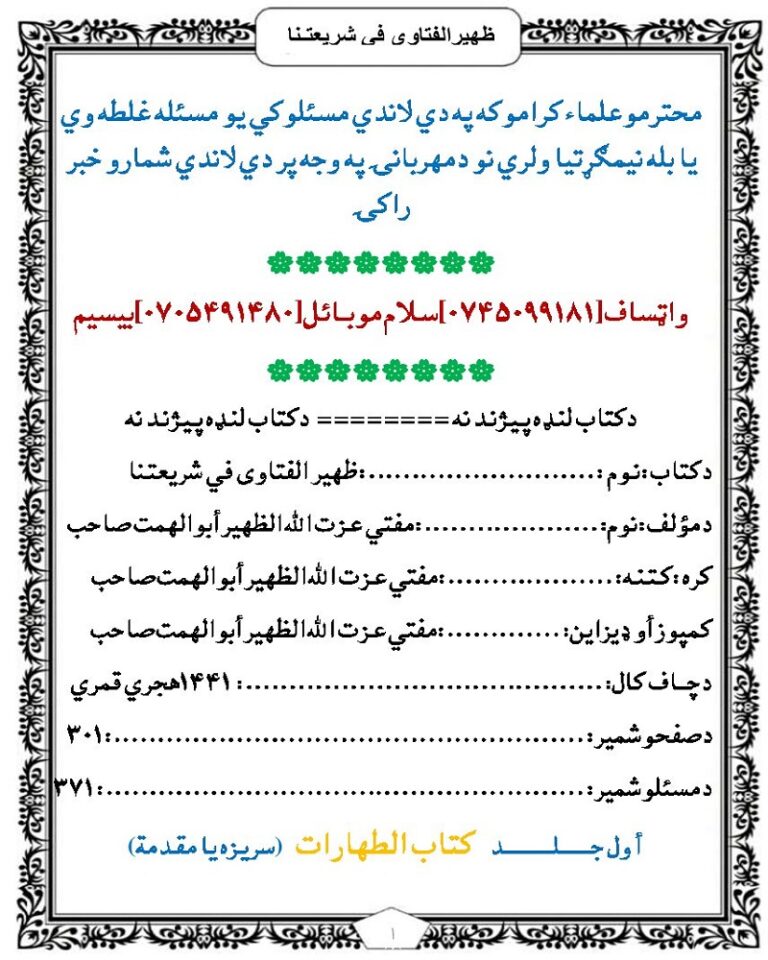 ظهیرالفتاوی فی شریعتنا
محترمو علماء کرامو که په دي لاندي مسئلو کي یو مسئله غلطه وي
یا بله نیمګړتیا ولري نو د مهربانۍ په وجه پر دي لاندي شمارو خبر
راکۍ
واټساف[۰۷۴۵۰۹۹۱۸۱]سلام موبائل[۰۷۰۵۴۹۱۴۸۰]بیسیم
دکتاب لنډه پیژند نه ======== دکتاب لنډه پیژند نه
دکتاب:نوم:..........................:ظهیر الفتاوی في شریعتنا
دمؤلف:نوم:....................:مفتي عزت الله الظهیر أبو الهمت صاحب
کره:کتنه:...................:مفتي عزت الله الظهیر أبو الهمت صاحب
کمپوز أو ډیزاین:.............:مفتي عزت الله الظهیر أبو الهمت صاحب
دچاف کال:.........................................:۱۴۴۱هجري قمري
دصفحو شمیر:......................................................:۳۰۱
دمسئلو شمیر:.......................................................:۳۷۱
أول جلد کتاب الطهارات (سریزه یا مقدمة)
۱